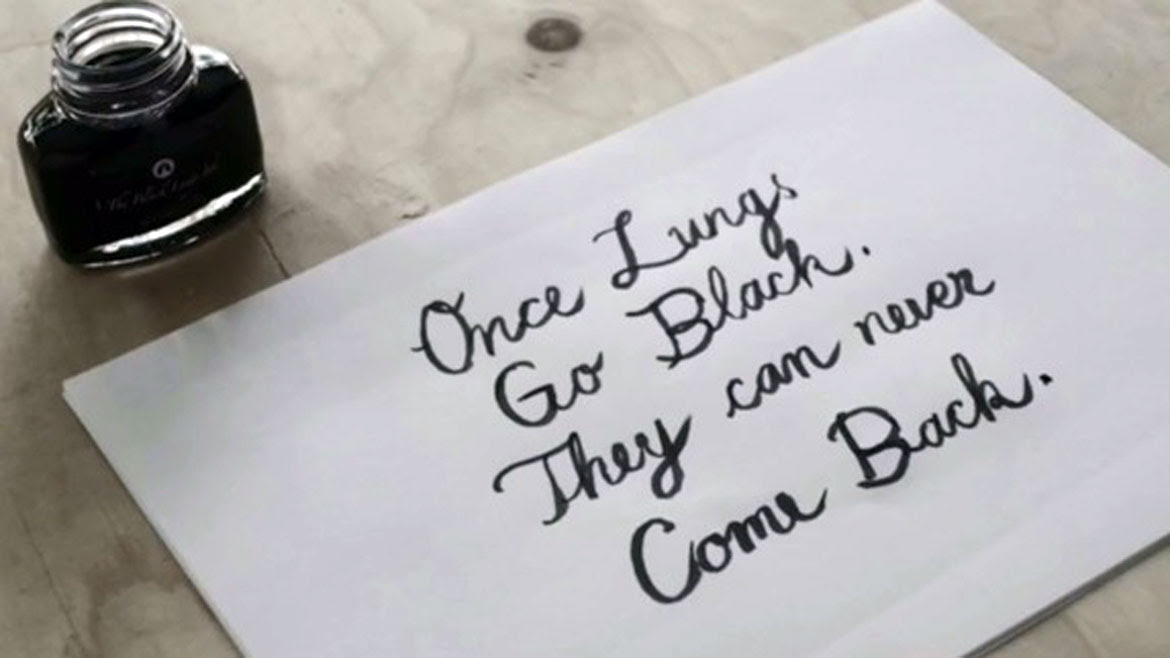 Once Lungs
Go Black.
They can never
Come Back.